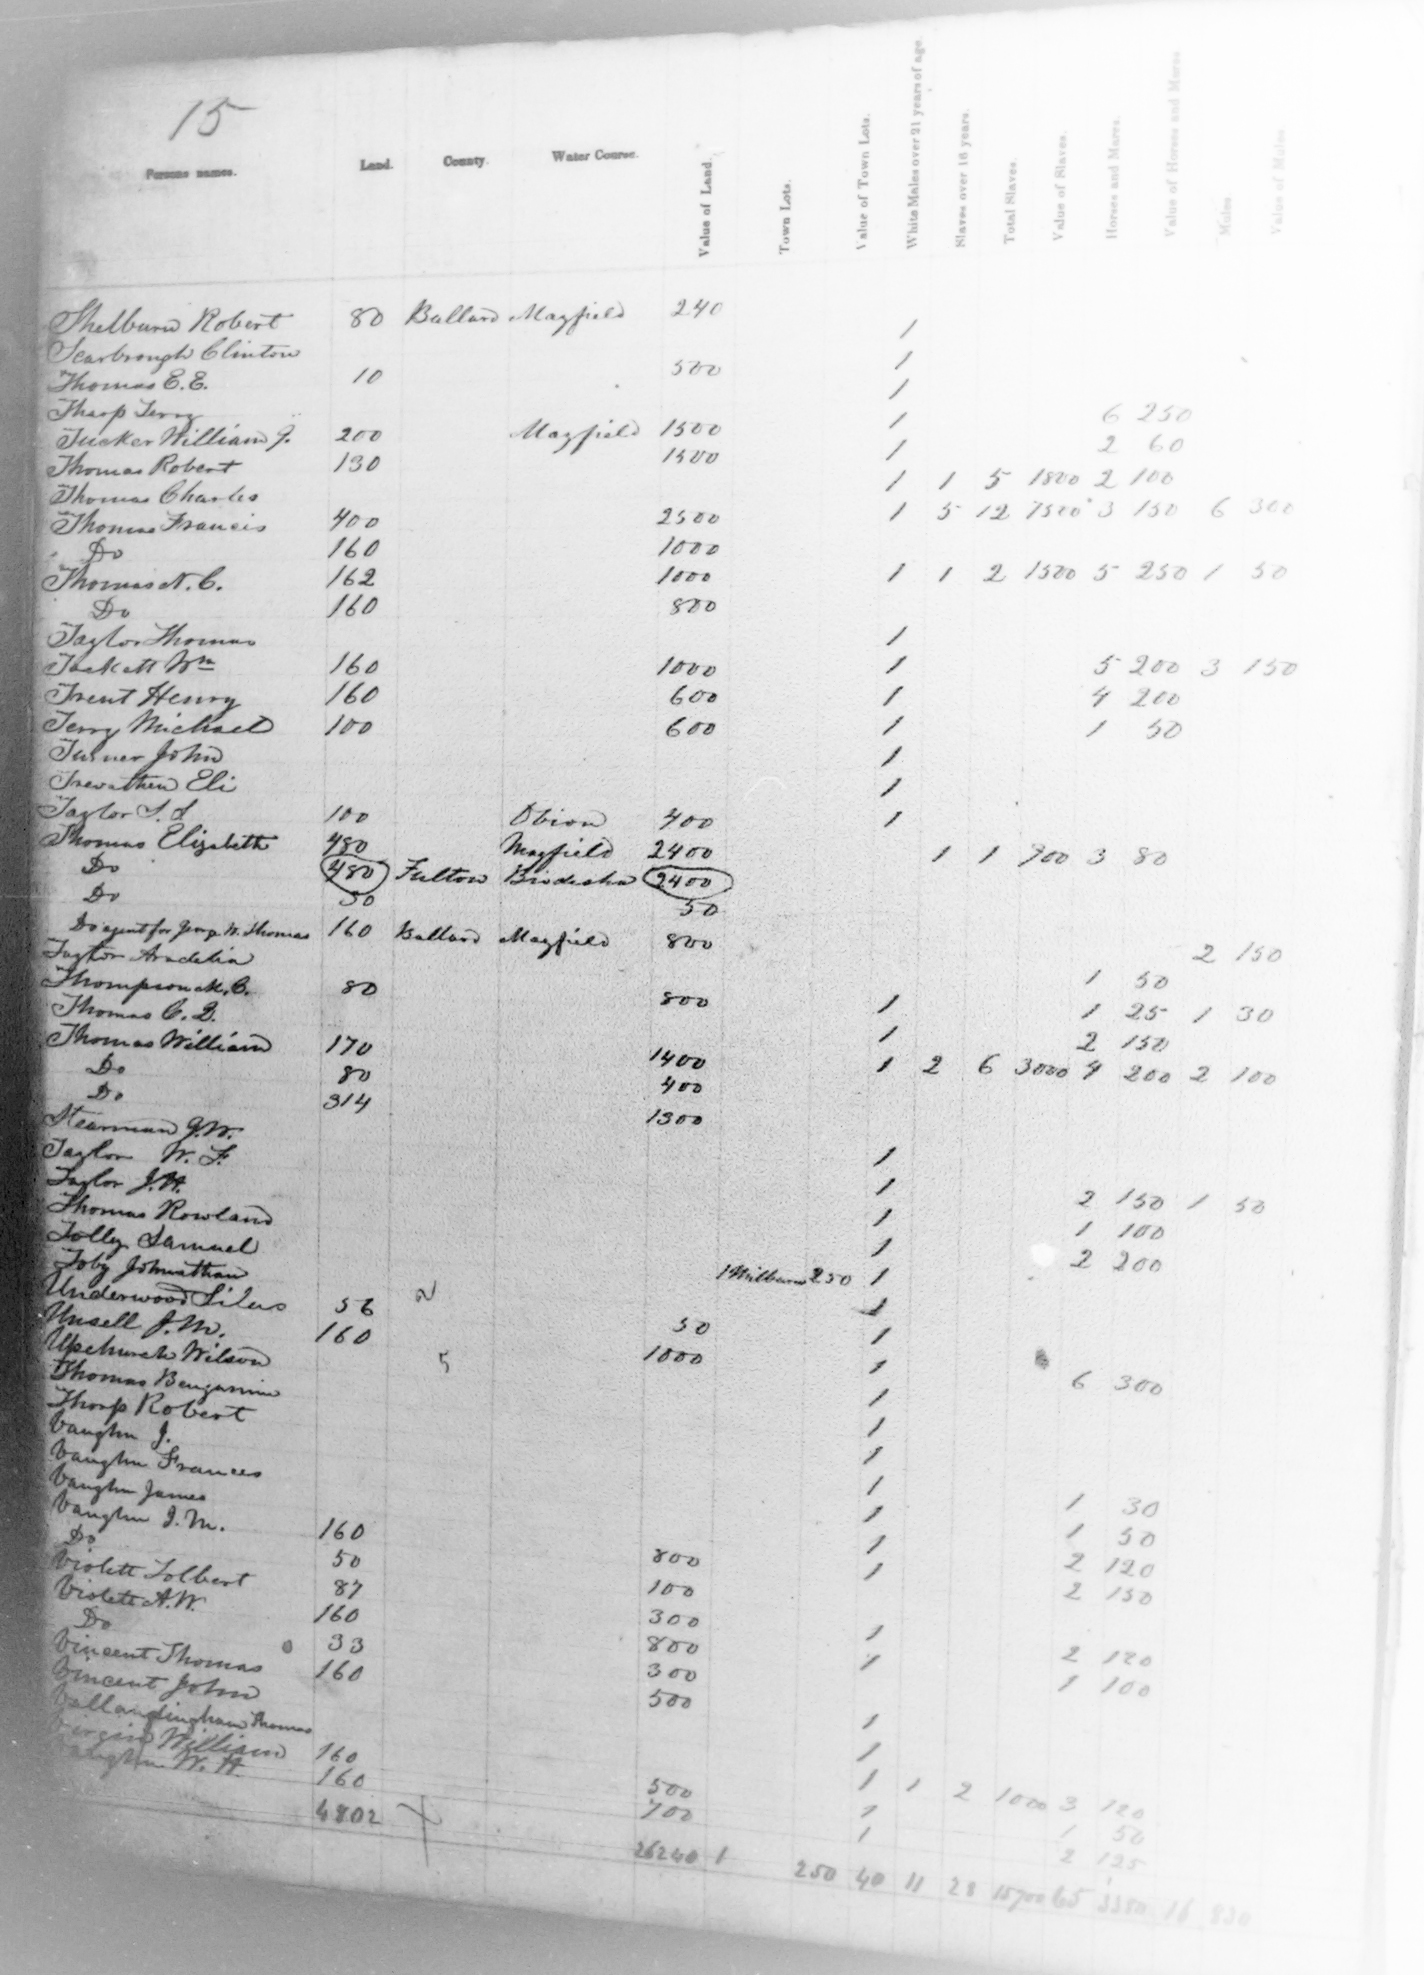 15
Persons names. Land. County. Water Course. Value of Land. Town Lots. Value of Town Lots. White Males over 21 years of age. Slaves over 16 years. Total Slaves. Value of Slaves. Horses and Mares. Value of Horses and Mares Mules Value of Mules
Shelburn Robert 80 Ballard Mayfield 240 1
Scarbrough Clinton 1
Thomas E. E. 10 500 1
Tharp Terry 1 6 250
Tucker William J. 200 Mayfield 1500 1 2 60
Thomas Robert 130 1500 1 1 5 1800 2 100
Thomas Charles
Thomas Francis 400 2500 1 5 12 7500 3 150 6 300
Do 160 1000
Thomas N. C. 162 1000 1 1 2 1500 5 250 1 50
Do 160 800
Taylor Thomas 1
Tackett Wm 160 1000 1 5 200 3 150
Trent Henry 160 600 1 4 200
Terry Michael 100 600 1 1 50
Turner John 1
Trevathen Eli 1
Taylor S. S 100 Obion 400 1
Thomas Elizabeth 480 Mayfield 2400 1 1 900 3 80
Do 480 Fulton 2400
Do 50 50
Do agent for Geo. W. Thomas 160 Ballard Mayfield 800
Taylor 2 150
Thompson M. C. 80 800 1 1 50
Thomas C. B. 1 1 25 1 30
Thomas William 170 1400 1 2 6 3000 4 200 2 100
Do 80 400
Do 314 1300
Stearman G. W. 1
Taylor W. F. 1
Taylor J. H. 1 2 150 1 50
Thomas Rowland 1 1 100
Tolly Samuel 1 2 200
Toby Johnathan 1 Milburn 250 1
Underwood Silas 56 50 1
Unsell J. M. 160 1000 1
Upchurch Wilson 5 1
Thomas Bengamin 1 6 300
Tharp Robert 1
Vaughn J. 1
Vaughn Frances 1
Vaughn James 1 1 30
Vaughn J. M. 160 800 1 1 50
Do 50 100
Violett Tolbert 87 300 1 2 120
Violett A. W. 160 800 1 2 150
Do 33 300
Vincent Thomas 160 500 1 2 120
Vincent John 1 1 100
Vallandingham Thomas 1
William 160 500 1 1 2 1000 3 120
Vaughn W. H. 160 700 1 2 125
4802 26240 1 250 40 11 28 15700 65 3380 16 830